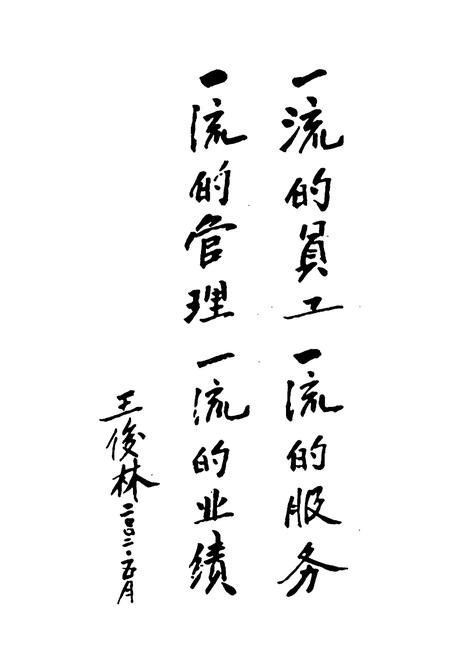 一流的員工一流的服务
一流的管理一流的业绩
王俊林二〇〇二·五月